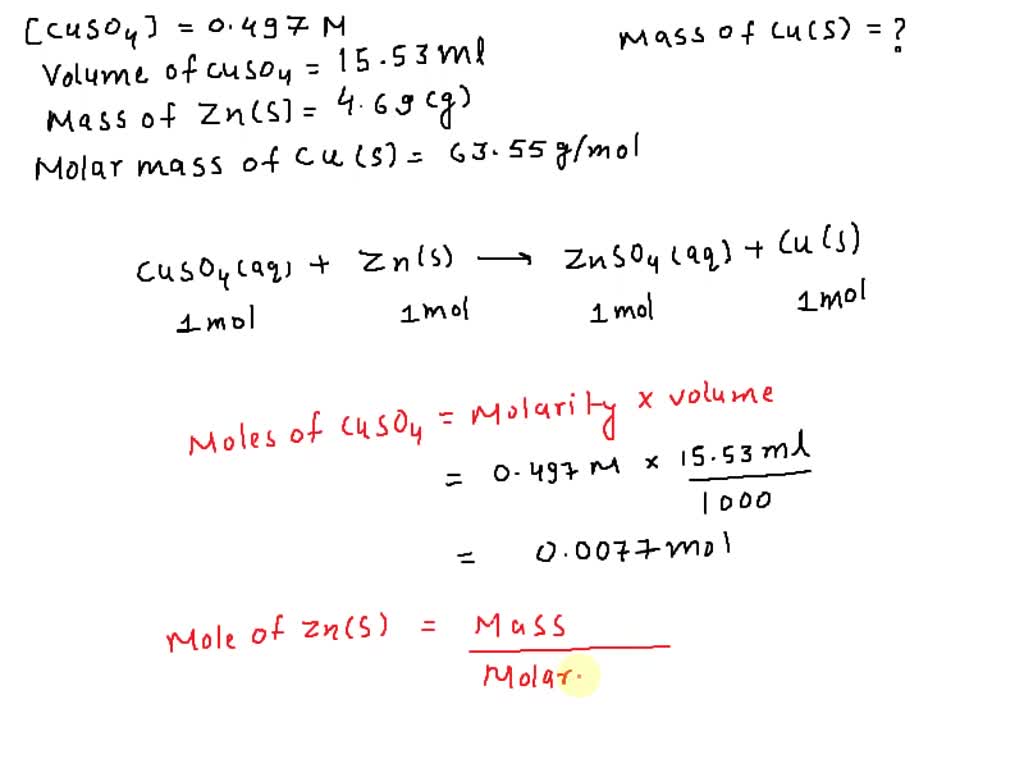 [CuSO4] = 0.497 M
Mass of Cu(s) = ?
Volume of CuSO4 = 15.53 ml
Mass of Zn(s) = 4.69 (g)
Molar mass of Cu(s) = 63.55 g/mol
CuSO4(aq) + Zn(s) → ZnSO4(aq) + Cu(s)
1 mol 1 mol 1 mol 1 mol
Moles of CuSO4 = Molarity × volume
= 0.497 M × 15.53 ml
1000
= 0.0077 mol
Mole of Zn(s) = Mass
Molar